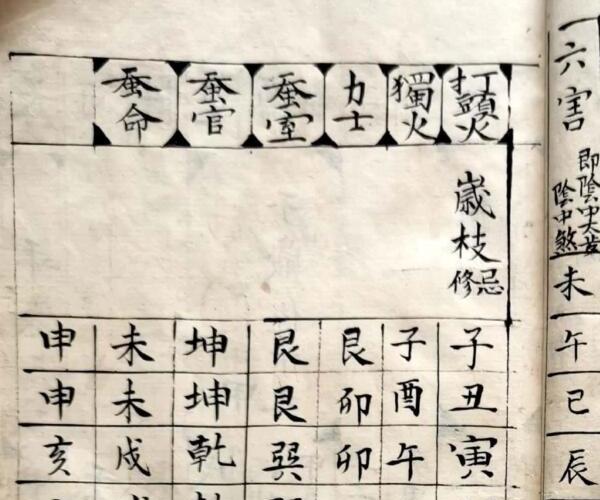 六害
即陰中
陰中煞
未
午
巳
辰
打頭火
獨火
力士
蚕室
蚕官
蚕命
歲枝
忌修
子子艮艮坤未申
丑酉卯艮坤未申
寅午卯巽乾戌亥